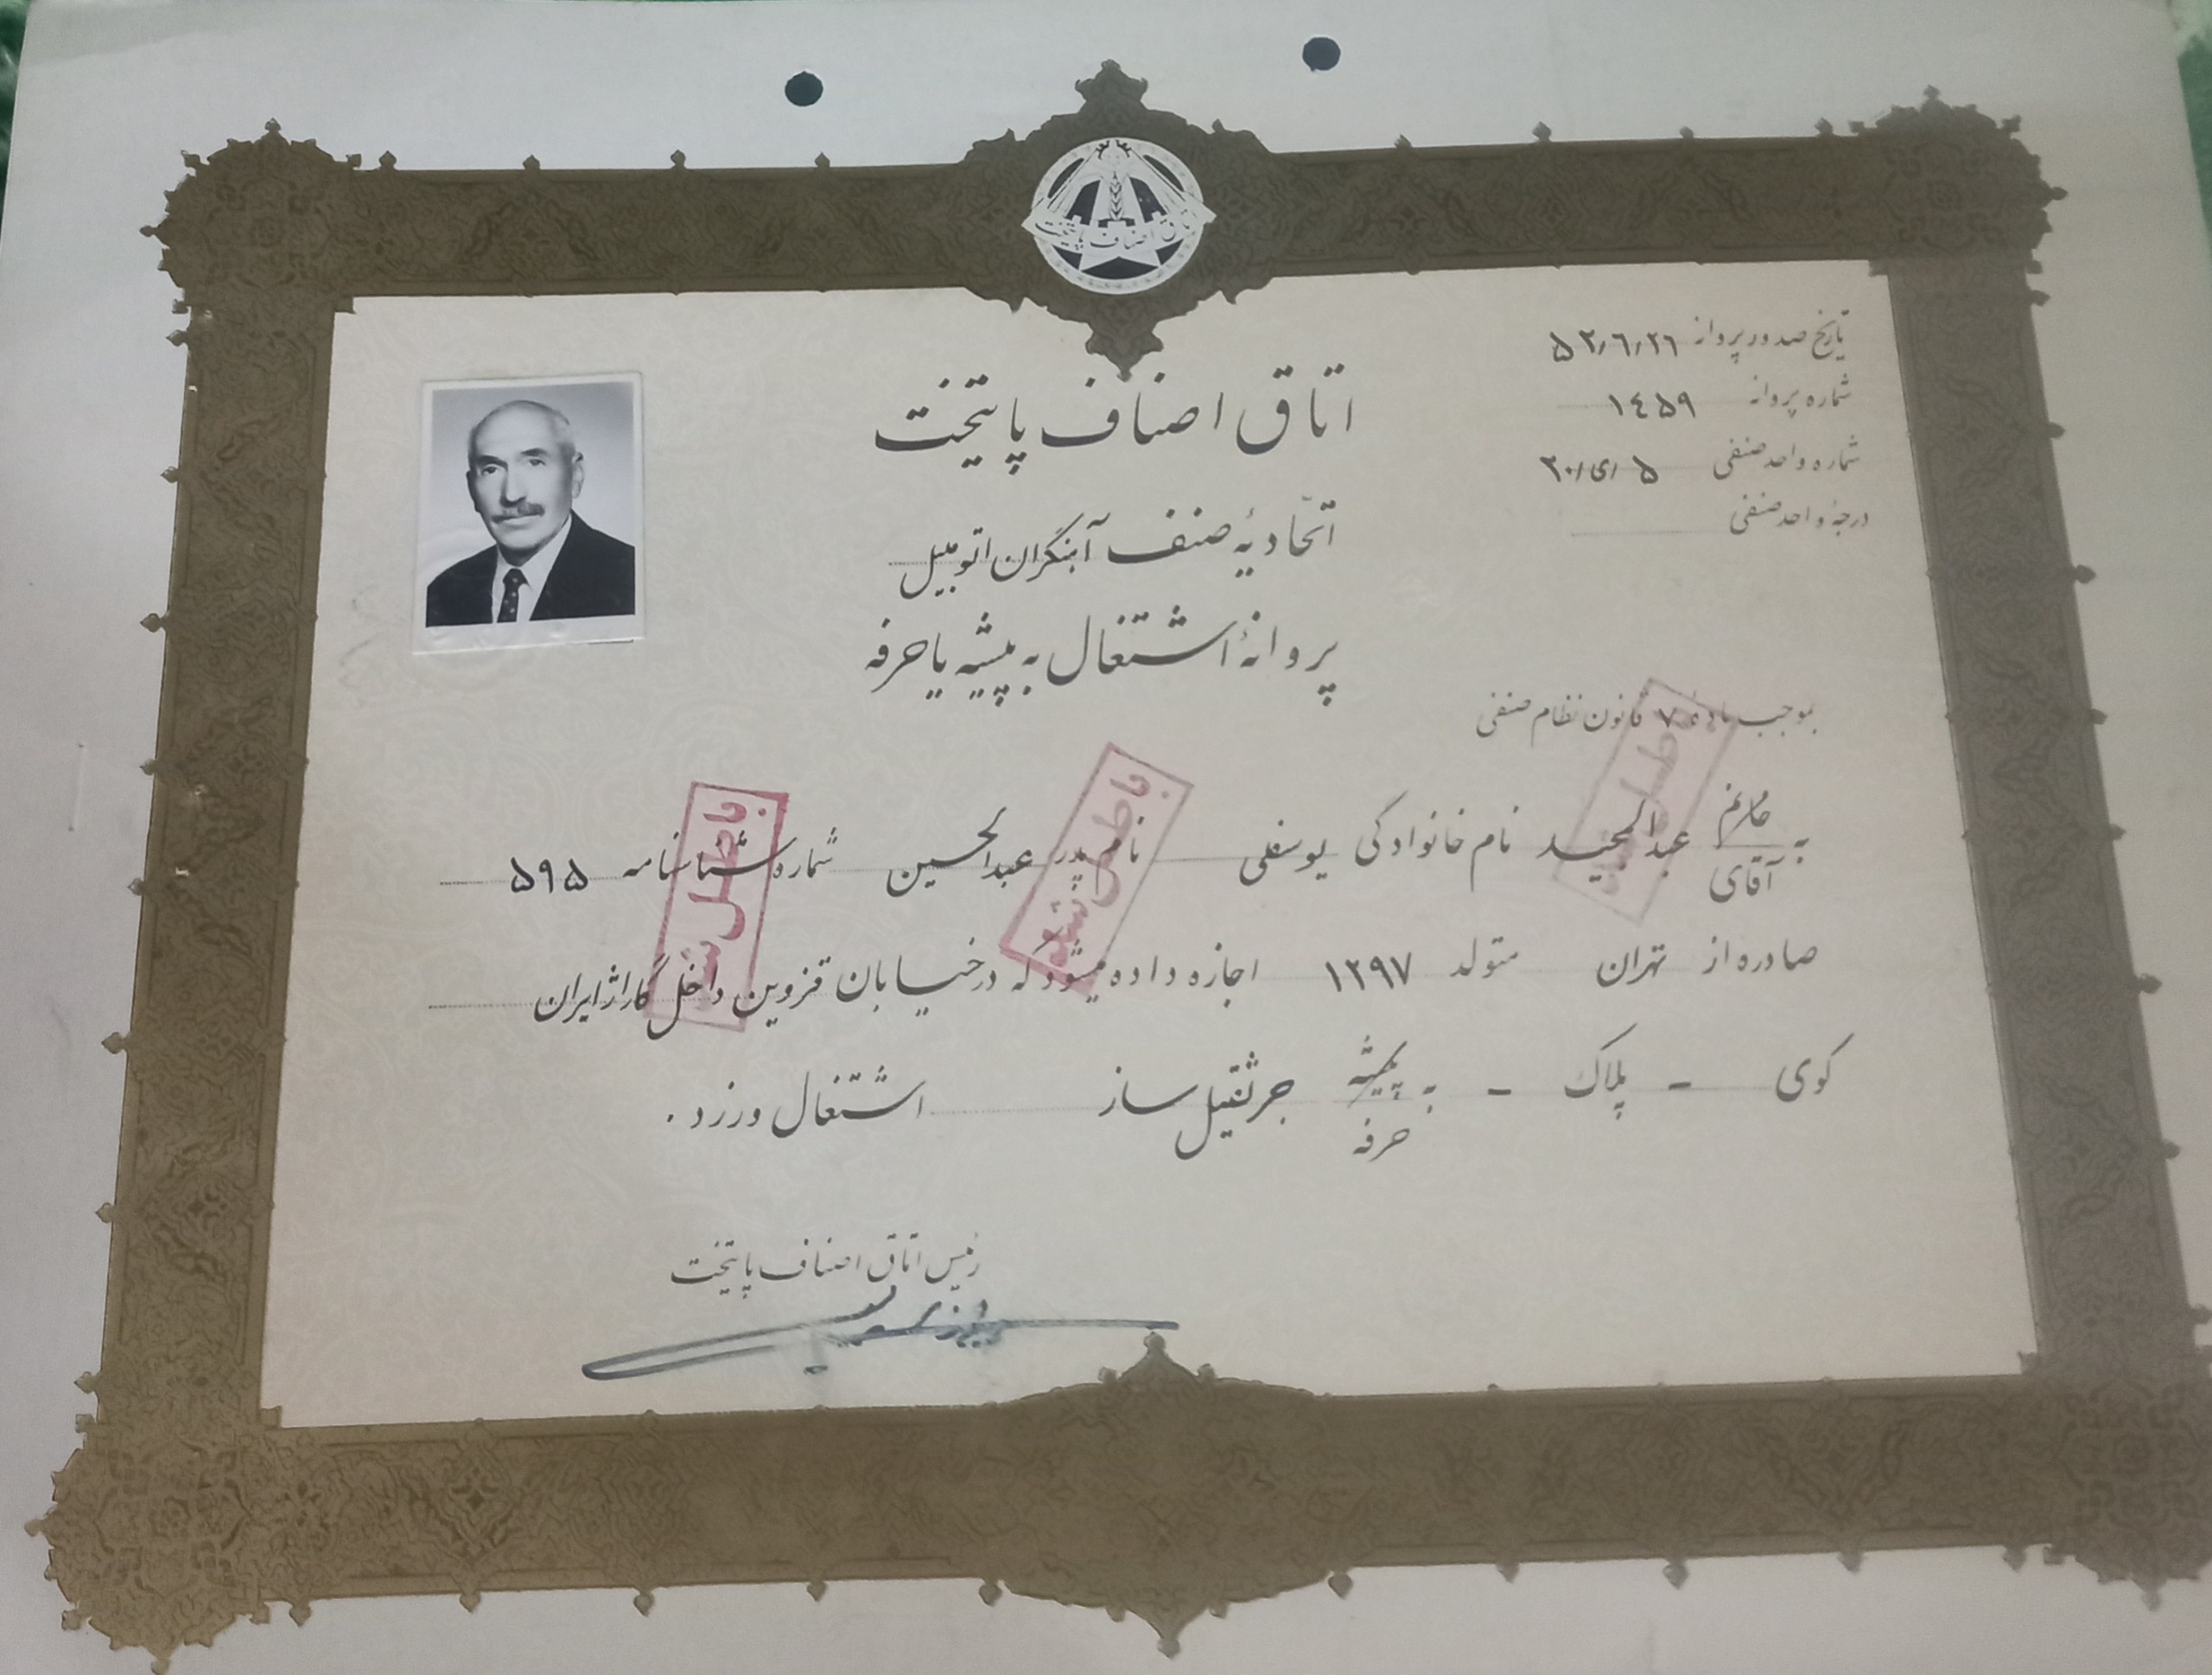 اتاق اصناف پایتخت
تاریخ صدور پروانه ۵۳/۶/۲۶
شماره پروانه ۱٤۵۹
شماره واحد صنفی ۵ /ی/۲۰
درجهٔ واحد صنفی
اتاق اصناف پایتخت
اتحادیهٔ صنف آهنگران اتومبیل
پروانهٔ اشتغال به پیشه یا حرفه
بموجب ماده ۷ قانون نظام صنفی
به خانم آقای عبدالمجید نام خانوادگی یوسفی نام پدر عبدالحسین شماره شناسنامه ۵۹۵
صادره از تهران متولد ۱۲۹۷ اجازه داده میشود که در خیابان قزوین داخل گاراژ ایران
کوی - پلاک - به پیشه حرفه جرثقیل ساز اشتغال ورزد .
باطل شد
باطل شد
باطل شد
رئیس اتاق اصناف پایتخت